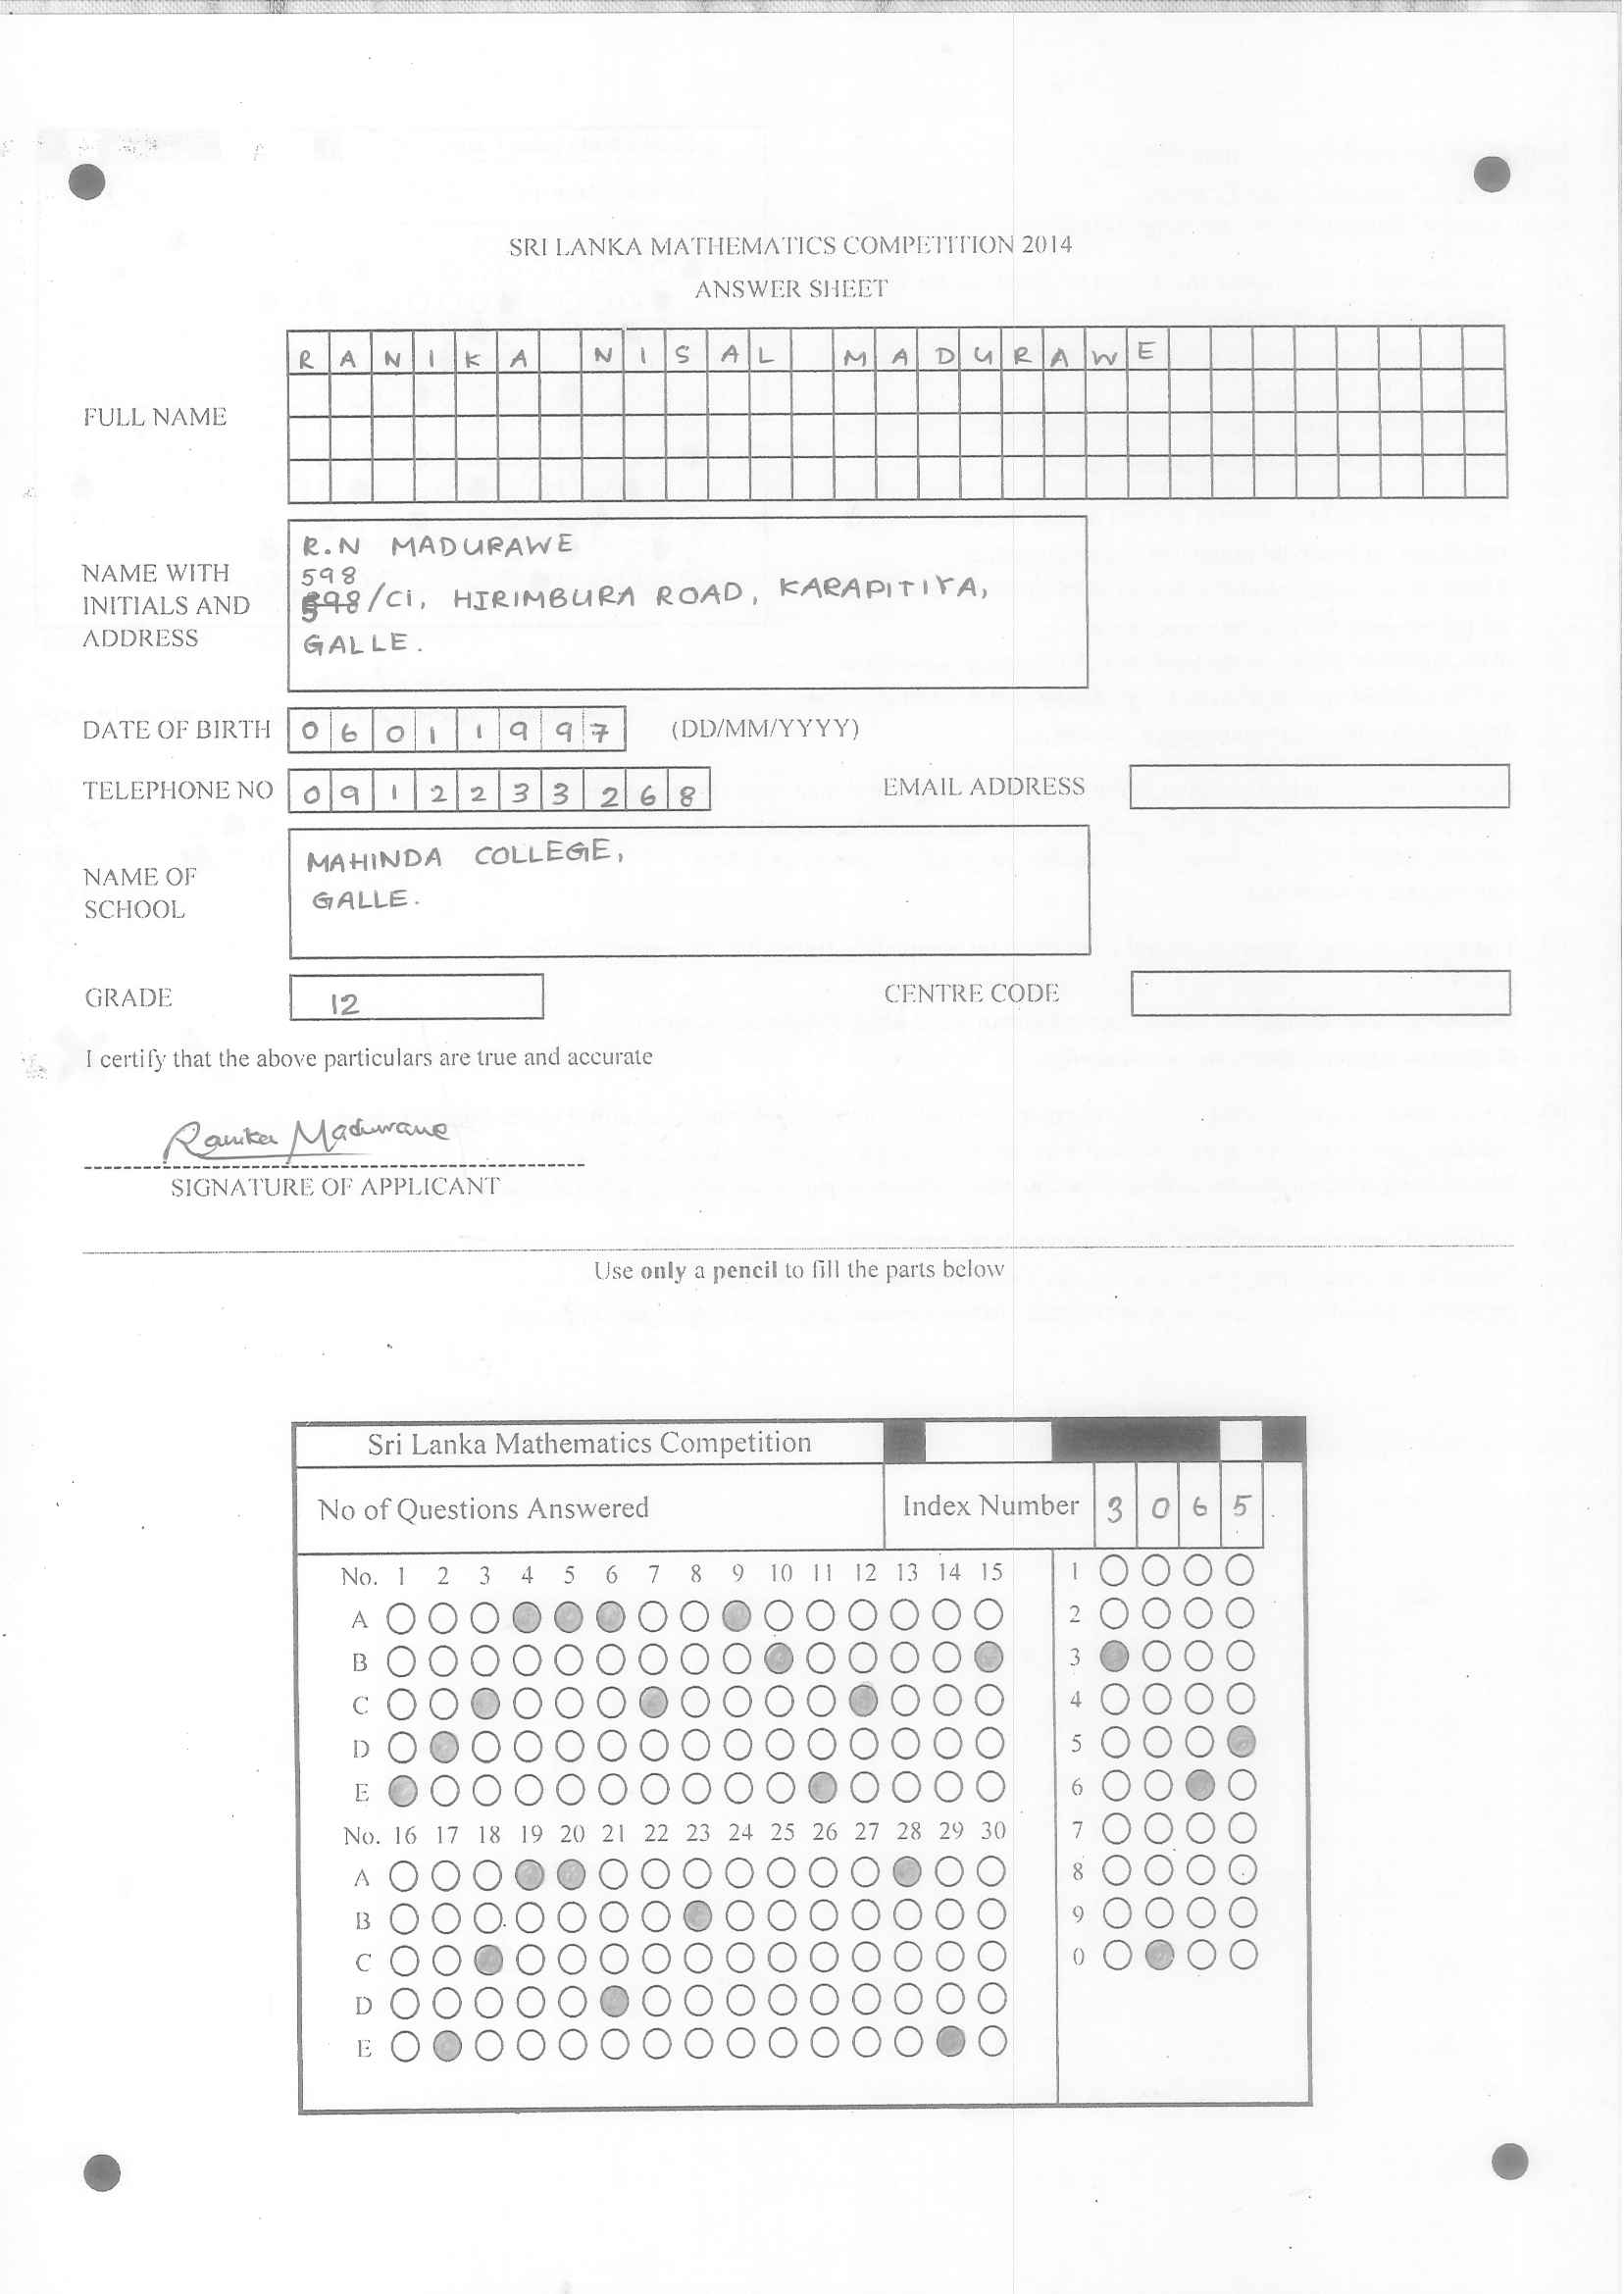 SRI LANKA MATHEMATICS COMPETITION 2014
ANSWER SHEET
FULL NAME
RANIKA NISAL MADURAWE
NAME WITH INITIALS AND ADDRESS
R.N MADURAWE
598
598/C1, HIRIMBURA ROAD, KARAPITIYA,
GALLE.
DATE OF BIRTH 06011997 (DD/MM/YYYY)
TELEPHONE NO 0912233268 EMAIL ADDRESS
NAME OF SCHOOL
MAHINDA COLLEGE,
GALLE.
GRADE 12 CENTRE CODE
I certify that the above particulars are true and accurate
Ranika Madurawe
SIGNATURE OF APPLICANT
Use only a pencil to fill the parts below
Sri Lanka Mathematics Competition
No of Questions Answered Index Number 3 0 6 5
No. 1 2 3 4 5 6 7 8 9 10 11 12 13 14 15 1
A 2
B 3
C 4
D 5
E 6
No. 16 17 18 19 20 21 22 23 24 25 26 27 28 29 30 7
A 8
B 9
C 0
D
E